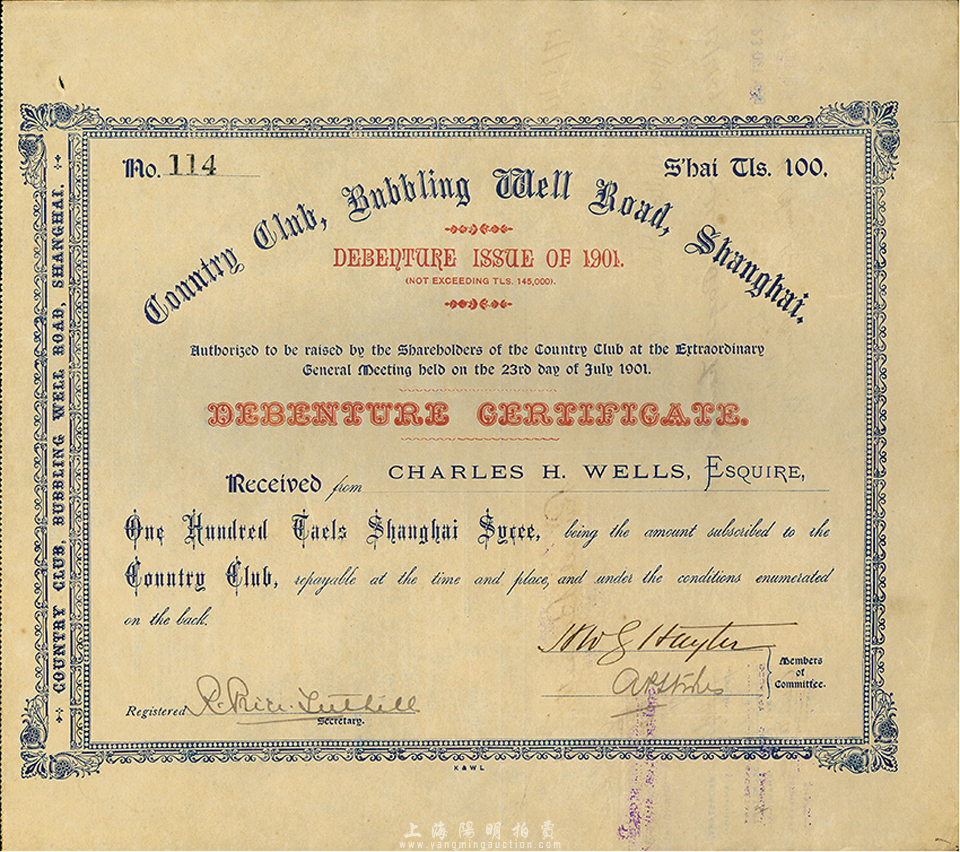 No. 114
S'hai Tls. 100.
Country Club, Bubbling Well Road, Shanghai.
DEBENTURE ISSUE OF 1901.
(NOT EXCEEDING TLS. 145,000).
Authorized to be raised by the Shareholders of the Country Club at the Extraordinary
General Meeting held on the 23rd day of July 1901.
DEBENTURE CERTIFICATE.
Received from CHARLES H. WELLS, ESQUIRE,
One Hundred Taels Shanghai Sycee, being the amount subscribed to the
Country Club, repayable at the time and place, and under the conditions enumerated
on the back.
Hayter
Members
of
Committee.
Registered
Secretary.
COUNTRY CLUB, BUBBLING WELL ROAD, SHANGHAI.
K & W L
上海陽明拍賣
www.yangmingauction.com